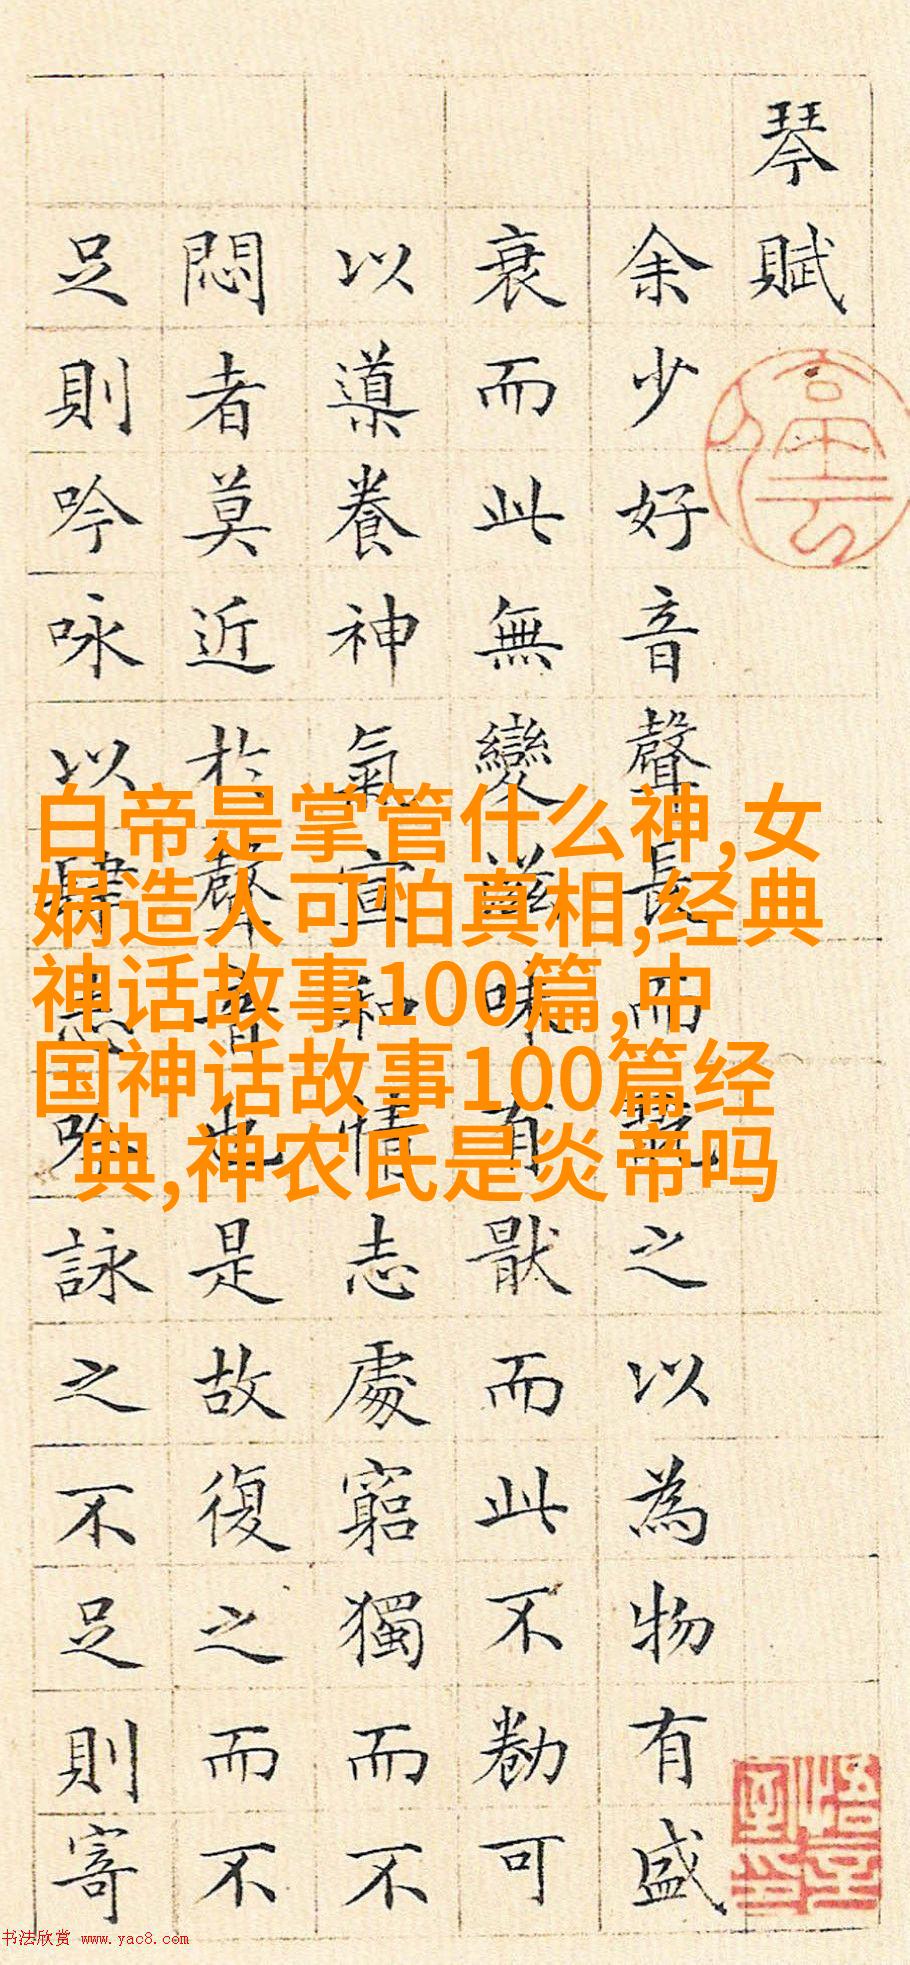 琴賦
余少好音聲長而翫之以為物有盛
衰而此無變滋味有猒而此不勌可
以導養神氣宣和情志處窮獨而不
悶者莫近於聲音也是故復之而不
足則吟咏以肆志吟詠之不足則寄
停云
悟言室印
白帝是掌管什么神,女
娲造人可怕真相,经典
神话故事100篇,中
国神话故事100篇经
典,神农氏是炎帝吗
书法欣赏 www.yac8.com